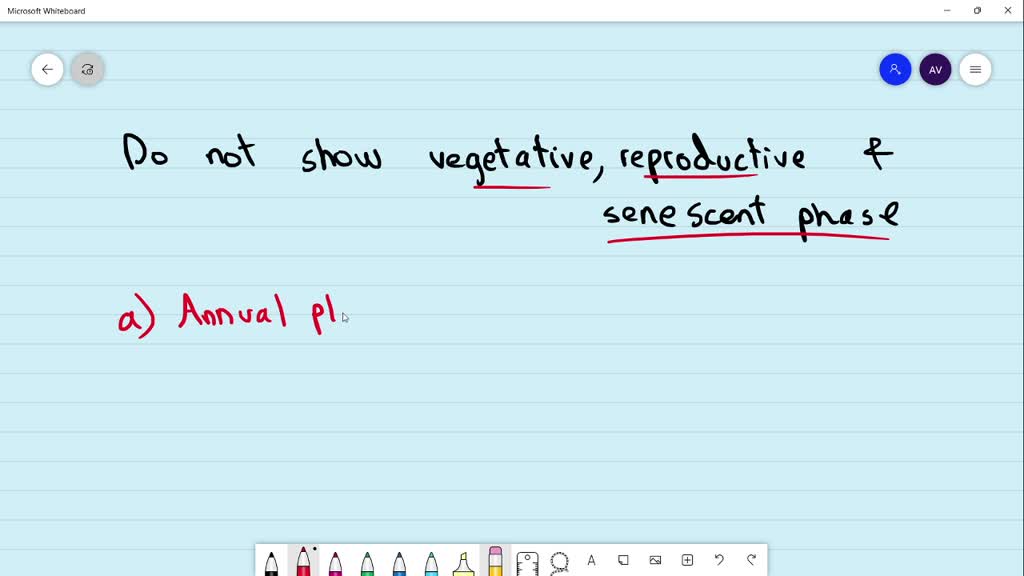 Microsoft Whiteboard
AV
Do not show vegetative, reproductive &
senescent phase
a) Annual pl
A